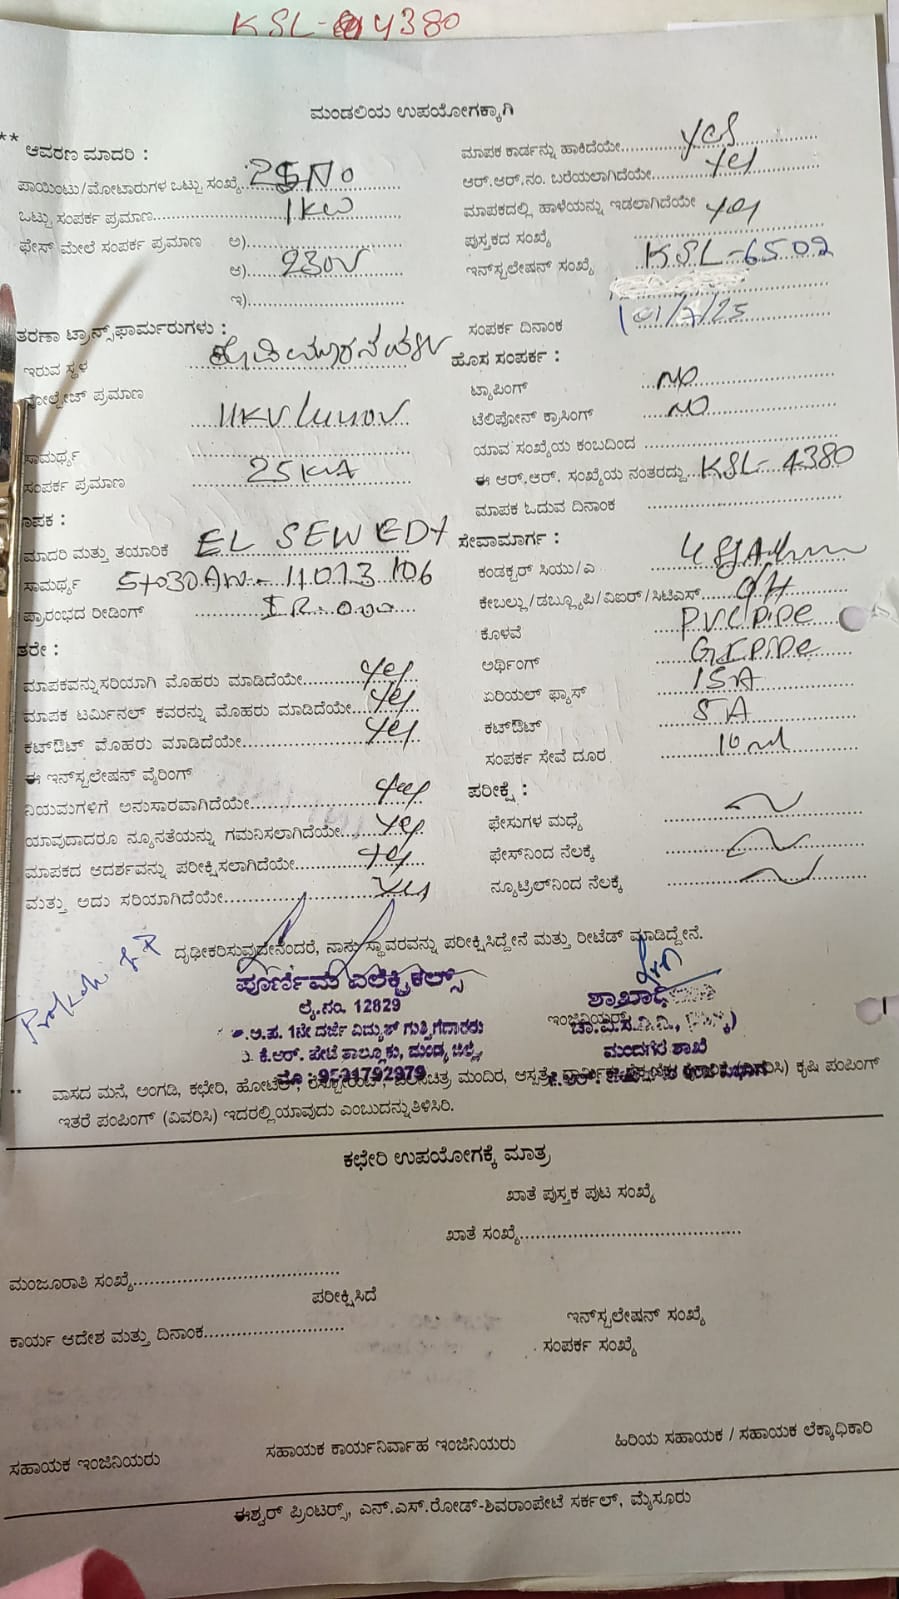 KSL- 4380
ಮಂಡಲಿಯ ಉಪಯೋಗಕ್ಕಾಗಿ
** ಆವರಣ ಮಾದರಿ :
ಪಾಯಿಂಟು/ಮೋಟಾರುಗಳ ಒಟ್ಟು ಸಂಖ್ಯೆ
ಒಟ್ಟು ಸಂಪರ್ಕ ಪ್ರಮಾಣ 1KW
ಫೇಸ್ ಮೇಲೆ ಸಂಪರ್ಕ ಪ್ರಮಾಣ ಅ)
ಆ) 230V
ಇ)
ತರಣಾ ಟ್ರಾನ್ಸ್‌ಫಾರ್ಮರುಗಳು :
ಇರುವ ಸ್ಥಳ
ವೋಲ್ಟೇಜ್ ಪ್ರಮಾಣ
11KV
ಸಾಮರ್ಥ್ಯ
ಸಂಪರ್ಕ ಪ್ರಮಾಣ 25KVA
ಾಪಕ :
ಮಾದರಿ ಮತ್ತು ತಯಾರಿಕೆ EL SEWEDY
ಸಾಮರ್ಥ್ಯ
ಪ್ರಾರಂಭದ ರೀಡಿಂಗ್ IR:000
ತರೇ :
ಮಾಪಕವನ್ನು ಸರಿಯಾಗಿ ಮೊಹರು ಮಾಡಿದೆಯೇ yes
ಮಾಪಕ ಟರ್ಮಿನಲ್ ಕವರನ್ನು ಮೊಹರು ಮಾಡಿದೆಯೇ yes
ಕಟ್‌ಔಟ್ ಮೊಹರು ಮಾಡಿದೆಯೇ yes
ಈ ಇನ್‌ಸ್ಟಲೇಷನ್ ವೈರಿಂಗ್
ನಿಯಮಗಳಿಗೆ ಅನುಸಾರವಾಗಿದೆಯೇ yes
ಯಾವುದಾದರೂ ನ್ಯೂನತೆಯನ್ನು ಗಮನಿಸಲಾಗಿದೆಯೇ yes
ಮಾಪಕದ ಆದರ್ಶವನ್ನು ಪರೀಕ್ಷಿಸಲಾಗಿದೆಯೇ yes
ಮತ್ತು ಅದು ಸರಿಯಾಗಿದೆಯೇ yes
ಮಾಪಕ ಕಾರ್ಡನ್ನು ಹಾಕಿದೆಯೇ yes
ಆರ್.ಆರ್.ನಂ. ಬರೆಯಲಾಗಿದೆಯೇ yes
ಮಾಪಕದಲ್ಲಿ ಹಾಳೆಯನ್ನು ಇಡಲಾಗಿದೆಯೇ yes
ಪುಸ್ತಕದ ಸಂಖ್ಯೆ
ಇನ್‌ಸ್ಟಲೇಷನ್ ಸಂಖ್ಯೆ KSL-6502
ಸಂಪರ್ಕ ದಿನಾಂಕ
ಹೊಸ ಸಂಪರ್ಕ :
ಟ್ಯಾಪಿಂಗ್ NO
ಟೆಲಿಪೋನ್ ಕ್ರಾಸಿಂಗ್ NO
ಯಾವ ಸಂಖ್ಯೆಯ ಕಂಬದಿಂದ
ಈ ಆರ್.ಆರ್. ಸಂಖ್ಯೆಯ ನಂತರದ್ದು KSL-4380
ಮಾಪಕ ಓದುವ ದಿನಾಂಕ
ಸೇವಾಮಾರ್ಗ :
ಕಂಡಕ್ಟರ್ ಸಿಯು/ಎ
ಕೇಬಲ್ಲು/ಡಬ್ಲ್ಯೂಪಿ/ವಿಐಆರ್/ಸಿಟಿಎಸ್ OH
ಕೊಳವೆ PVC pipe
ಅರ್ಥಿಂಗ್ GI pipe
ಏರಿಯಲ್ ಫ್ಯೂಸ್ 15A
ಕಟ್‌ಔಟ್ 5A
ಸಂಪರ್ಕ ಸೇವೆ ದೂರ 10 m
ಪರೀಕ್ಷೆ :
ಫೇಸುಗಳ ಮಧ್ಯೆ
ಫೇಸ್‌ನಿಂದ ನೆಲಕ್ಕೆ
ನ್ಯೂಟ್ರಿಲ್‌ನಿಂದ ನೆಲಕ್ಕೆ
ದೃಢೀಕರಿಸುವುದೇನೆಂದರೆ, ನಾನು ಸ್ಥಾವರವನ್ನು ಪರೀಕ್ಷಿಸಿದ್ದೇನೆ ಮತ್ತು ರೀಟೆಡ್ ಮಾಡಿದ್ದೇನೆ.
ಪೂರ್ಣಿಮ ಎಲೆಕ್ಟ್ರಿಕಲ್ಸ್
ಲೈ.ನಂ. 12829
1ನೇ ದರ್ಜೆ ವಿದ್ಯುತ್ ಗುತ್ತಿಗೆದಾರರು
ಕೆ.ಆರ್. ಪೇಟೆ ತಾಲ್ಲೂಕು, ಮಂಡ್ಯ ಜಿಲ್ಲೆ
ಇಂಜಿನಿಯರ್
ಮಂದಗೆರೆ ಶಾಖೆ
** ವಾಸದ ಮನೆ, ಅಂಗಡಿ, ಕಛೇರಿ, ಹೋಟೆಲ್, ಮಂದಿರ, ಆಸ್ಪತ್ರೆ, ಕೃಷಿ ಪಂಪಿಂಗ್
ಇತರೆ ಪಂಪಿಂಗ್ (ವಿವರಿಸಿ) ಇದರಲ್ಲಿ ಯಾವುದು ಎಂಬುದನ್ನು ತಿಳಿಸಿರಿ.
ಕಛೇರಿ ಉಪಯೋಗಕ್ಕೆ ಮಾತ್ರ
ಖಾತೆ ಪುಸ್ತಕ ಪುಟ ಸಂಖ್ಯೆ
ಖಾತೆ ಸಂಖ್ಯೆ
ಮಂಜೂರಾತಿ ಸಂಖ್ಯೆ
ಪರೀಕ್ಷಿಸಿದೆ
ಕಾರ್ಯ ಆದೇಶ ಮತ್ತು ದಿನಾಂಕ
ಇನ್‌ಸ್ಟಲೇಷನ್ ಸಂಖ್ಯೆ
ಸಂಪರ್ಕ ಸಂಖ್ಯೆ
ಸಹಾಯಕ ಇಂಜಿನಿಯರು ಸಹಾಯಕ ಕಾರ್ಯನಿರ್ವಾಹ ಇಂಜಿನಿಯರು ಹಿರಿಯ ಸಹಾಯಕ / ಸಹಾಯಕ ಲೆಕ್ಕಾಧಿಕಾರಿ
ಈಶ್ವರ್ ಪ್ರಿಂಟರ್ಸ್, ಎನ್.ಎಸ್.ರೋಡ್-ಶಿವರಾಂಪೇಟೆ ಸರ್ಕಲ್, ಮೈಸೂರು